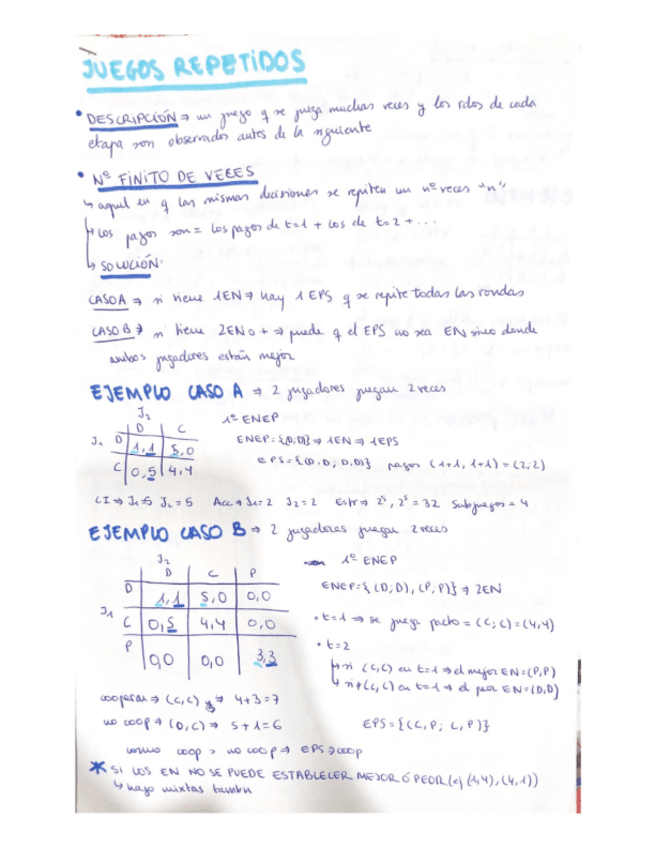 JUEGOS REPETIDOS
• DESCRIPCIÓN ⇒ un juego q se juega muchas veces y los rdos de cada
etapa son observados antes de la siguiente
• Nº FINITO DE VECES
↳ aquel en q las mismas decisiones se repiten un nº veces "n"
↳ Los pagos son = los pagos de t=1 + los de t=2 + ...
↳ SOLUCIÓN:
CASO A ⇒ si tiene 1EN ⇒ hay 1 EPS q se repite todas las rondas
CASO B ⇒ si tiene 2EN o + ⇒ puede q el EPS no sea EN sino donde
ambos jugadores están mejor
EJEMPLO CASO A ⇒ 2 jugadores juegan 2 veces
J2
D C
J1 D 1,1 5,0
C 0,5 4,4
1º ENEP
ENEP={(D,D)} ⇒ 1EN ⇒ 1EPS
EPS={(D,D; D,D)} pagos (1+1, 1+1) = (2,2)
CI ⇒ J1=5 J2=5 Acc ⇒ J1=2 J2=2 Estr ⇒ 2⁵, 2⁵ = 32 Subjuegos = 4
EJEMPLO CASO B ⇒ 2 jugadores juegan 2 veces
J2
D C P
D 1,1 5,0 0,0
J1 C 0,5 4,4 0,0
P 0,0 0,0 3,3
1º ENEP
ENEP={(D;D), (P;P)} ⇒ 2EN
• t=1 ⇒ se juega pacto = (C;C) = (4,4)
• t=2
↳ si (C,C) en t=1 ⇒ el mejor EN=(P,P)
↳ si ≠ (C,C) en t=1 ⇒ el peor EN=(D,D)
cooperar ⇒ (C,C) ⇒ 4+3=7
no coop ⇒ (D,C) ⇒ 5+1=6
EPS={(C,P; C,P)}
como coop > no coop ⇒ EPS ⇒ coop
* SI LOS EN NO SE PUEDE ESTABLECER MEJOR Ó PEOR (ej (1,4), (4,1))
↳ hago mixtas también